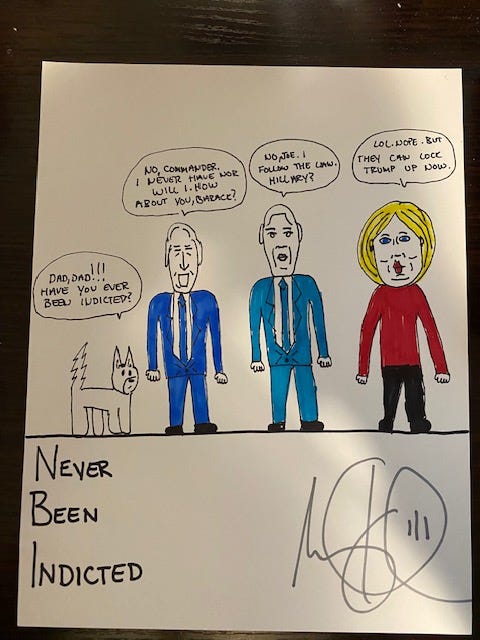 DAD, DAD!!!
HAVE YOU EVER
BEEN INDICTED?
NO, COMMANDER.
I NEVER HAVE NOR
WILL I. HOW
ABOUT YOU, BARACK?
NO, JOE. I
FOLLOW THE LAW.
HILLARY?
LOL. NOPE. BUT
THEY CAN LOCK
TRUMP UP NOW.
NEVER
BEEN
INDICTED